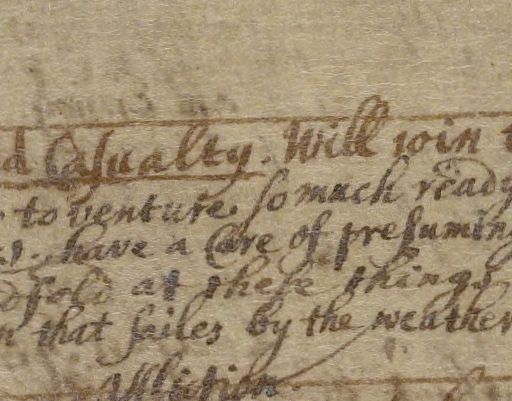 d Casualty. Will ioin t
to venture so much ready
have a Care of presuming
dfold at these things
n that sailes by the weather
Affliction